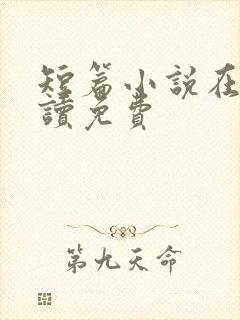 短篇小說在
讀免費
第九天命